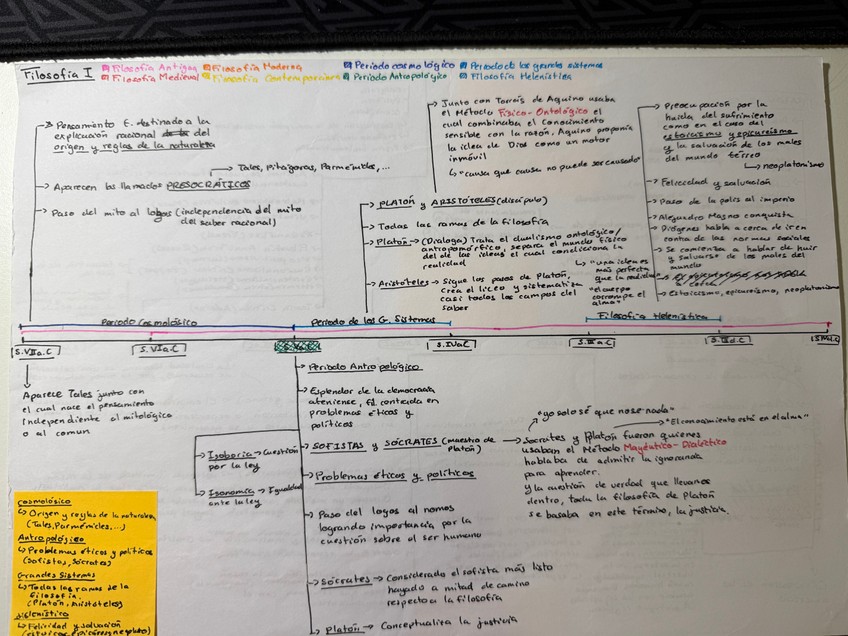 Filosofía I
Filosofía Antigua
Filosofía Moderna
Periodo cosmológico
Periodo de los grandes sistemas
Filosofía Medieval
Filosofía Contemporanea
Periodo Antropológico
Filosofía Helenística
Pensamiento f. destinado a la
explicación racional del
origen y reglas de la naturaleza
Tales, Pitágoras, Parménides, ...
Aparecen los llamados PRESOCRÁTICOS
Paso del mito al logos (independencia del mito
del saber racional)
Junto con Tomás de Aquino usaba
el Método Físico-Ontológico el
cual combinaba el conocimiento
sensible con la razón, Aquino proponía
la idea de Dios como un motor
inmóvil
"causa que causa no puede ser causado"
PLATÓN y ARISTÓTELES (discípulo)
Todas las ramas de la filosofía
Platón → (Dialoga) Trata el dualismo ontológico/
antropomórfico, separa el mundo físico
del de las ideas el cual condiciona la
realidad
"una idea es
más perfecta
que la realidad"
"el cuerpo
corrompe el
alma"
Aristóteles → Sigue los pasos de Platón,
crea el liceo y sistematiza
casi todos los campos del
saber
Preocupación por la
huida del sufrimiento
como en el caso del
estoicismo y epicureismo
y la salvación de los males
del mundo térreo
neoplatonismo
Felicidad y salvación
Paso de la polis al imperio
Alejandro Magno conquista
Diógenes habla acerca de ir en
contra de las normas sociales
Se comienza a hablar de huir
y salvarse de los males del
mundo
Estoicismo, epicureismo, neoplatonismo
Periodo Cosmológico
Periodo de los G. Sistemas
Filosofía Helenística
S.VII a.C
S.VI a.C
S.IV a.C
S.III a.C
Aparece Tales junto con
el cual nace el pensamiento
independiente al mitológico
o al común
Periodo Antropológico
Esplendor de la democracia
ateniense, fil. centrada en
problemas éticos y
políticos
SOFISTAS y SÓCRATES (maestro de
Platón)
Isegoría → Cuestión
por la ley
Isonomía → Igualdad
ante la ley
Problemas éticos y políticos
Paso del logos al nomos
logrando importancia por la
cuestión sobre el ser humano
Sócrates → Considerado el sofista más listo
hayado a mitad de camino
respecto a la filosofía
Platón → Conceptualiza la justicia
"yo solo sé que no se nada"
"El conocimiento está en el alma"
Sócrates y Platón fueron quienes
usaban el Método Mayéutico-Dialéctico
hablaba de admitir la ignorancia
para aprender.
y la cuestión de verdad que llevamos
dentro, toda la filosofía de Platón
se basaba en este término, la justicia.
Cosmológico
Origen y reglas de la naturaleza
(Tales, Parménides, ...)
Antropológico
Problemas éticos y políticos
(Sofistas, Sócrates)
Grandes Sistemas
Todas las ramas de la
filosofía.
(Platón, Aristóteles)
Helenística
Felicidad y salvación